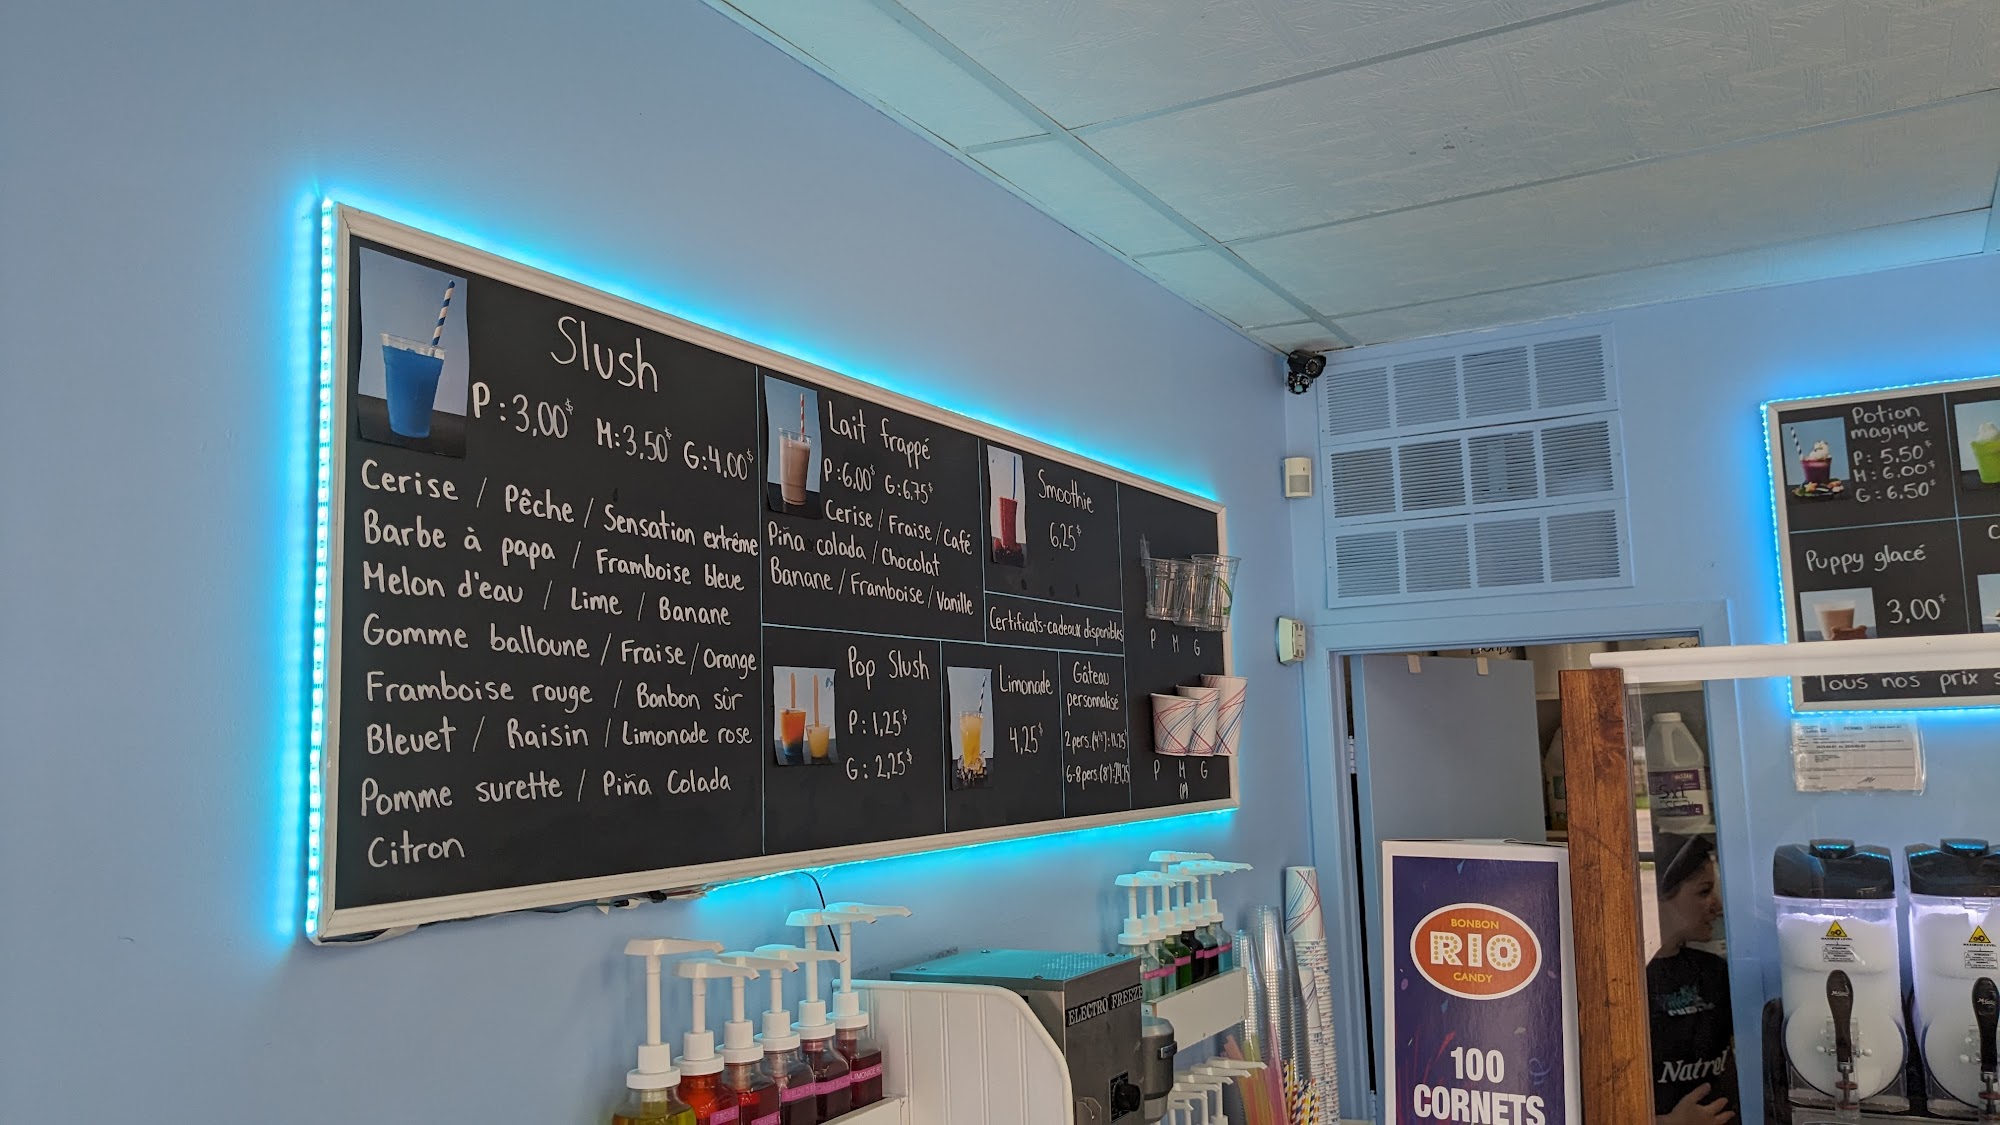 Slush
P: 3,00$ M: 3,50$ G: 4,00$
Cerise / Pêche / Sensation extrême
Barbe à papa / Framboise bleue
Melon d'eau / Lime / Banane
Gomme balloune / Fraise / Orange
Framboise rouge / Bonbon sûr
Bleuet / Raisin / Limonade rose
Pomme surette / Piña Colada
Citron
Lait frappé
P: 6,00$ G: 6,75$
Cerise / Fraise / Café
Piña colada / Chocolat
Banane / Framboise / Vanille
Pop Slush
P: 1,25$
G: 2,25$
Smoothie
6,25$
Certificats-cadeaux disponibles
Limonade
4,25$
Gâteau
personnalisé
2 pers.
6-8 pers. (8")
P M G
P M G
Potion
magique
P: 5,50$
M: 6,00$
G: 6,50$
Puppy glacé
3,00$
Tous nos prix s
ELECTRO FREEZE
BONBON
RIO
CANDY
100
CORNETS
Natrel
MAXIMUM LEVEL
MAXIMUM LEVEL